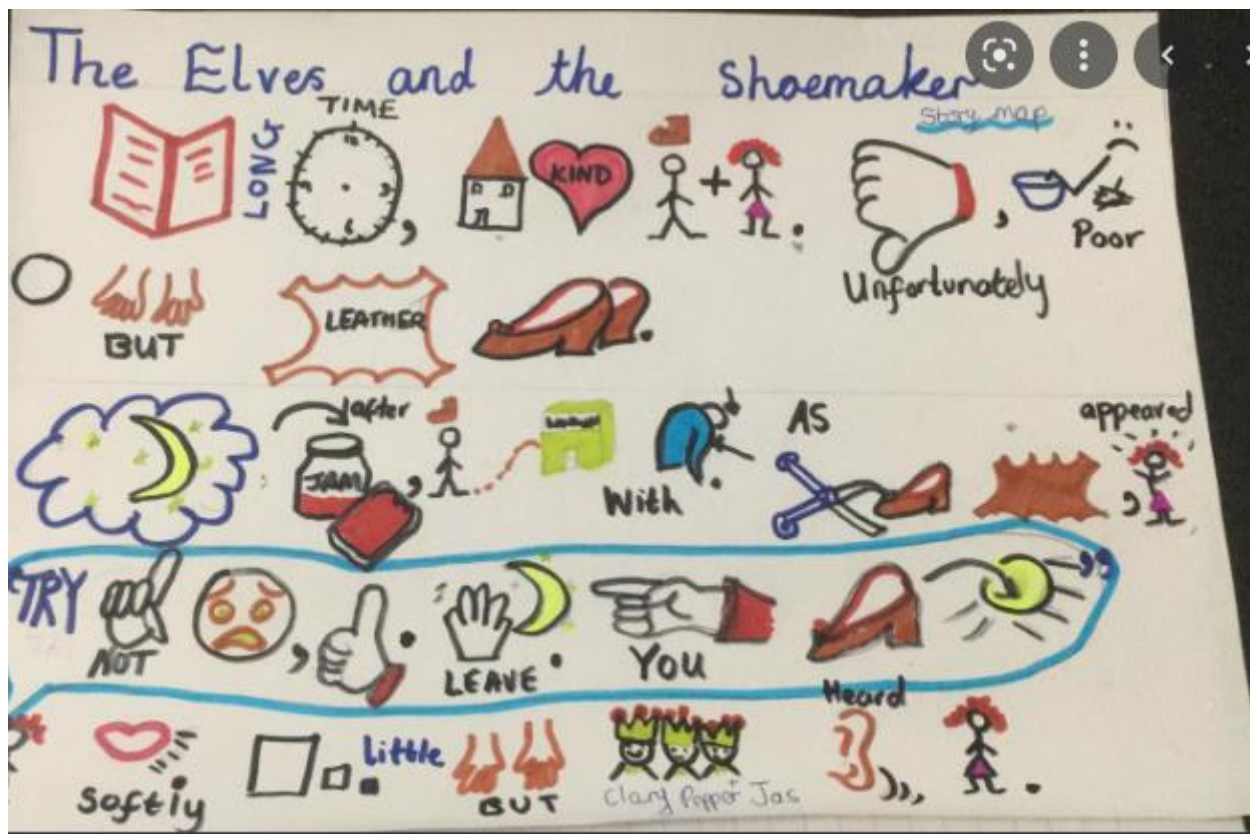 The Elves and the Shoemaker
Story Map
LONG TIME
,
KIND + . , Poor
Unfortunately
BUT LEATHER .
after JAM , With . AS , appeared
TRY NOT , . LEAVE . YOU ”
Softly Little BUT Heard .
Clary Pepper + Jas